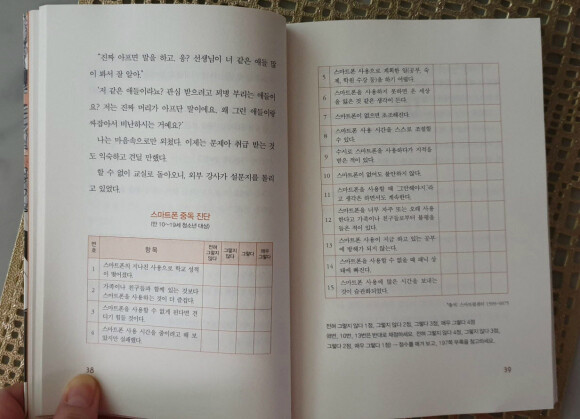 "진짜 아프면 말을 하고, 응? 선생님이 너 같은 애들 많
이 봐서 잘 알아."
'저 같은 애들이라뇨? 관심 받으려고 꾀병 부리는 애들이
요? 저는 진짜 머리가 아프단 말이에요. 왜 그런 애들이랑
싸잡아서 비난하시는 거예요?'
나는 마음속으로만 외쳤다. 이제는 문제아 취급 받는 것
도 익숙하고 견딜 만했다.
할 수 없이 교실로 돌아오니, 외부 강사가 설문지를 돌리
고 있었다.
스마트폰 중독 진단
(만 10~19세 청소년 대상)
번호 항목 전혀 그렇지 않다 그렇지 않다 그렇다 매우 그렇다
1 스마트폰의 지나친 사용으로 학교 성적
이 떨어졌다.
2 가족이나 친구들과 함께 있는 것보다
스마트폰을 사용하는 것이 더 즐겁다.
3 스마트폰을 사용할 수 없게 된다면 견
디기 힘들 것이다.
4 스마트폰 사용 시간을 줄이려고 해 보
았지만 실패했다.
38
5 스마트폰 사용으로 계획한 일(공부, 숙
제, 학원 수강 등)을 하기 어렵다.
6 스마트폰을 사용하지 못하면 온 세상
을 잃은 것 같은 생각이 든다.
7 스마트폰이 없으면 초조해진다.
8 스마트폰 사용 시간을 스스로 조절할
수 있다.
9 수시로 스마트폰을 사용하다가 지적을
받은 적이 있다.
10 스마트폰이 없어도 불안하지 않다.
11 스마트폰을 사용할 때 '그만해야지'라
고 생각은 하면서도 계속한다.
12 스마트폰을 너무 자주 또는 오래 사용
한다고 가족이나 친구들로부터 불평을
들은 적이 있다.
13 스마트폰 사용이 지금 하고 있는 공부
에 방해가 되지 않는다.
14 스마트폰을 사용할 수 없을 때 패닉 상
태에 빠진다.
15 스마트폰 사용에 많은 시간을 보내는
것이 습관화되었다.
전혀 그렇지 않다 1점, 그렇지 않다 2점, 그렇다 3점, 매우 그렇다 4점
8번, 10번, 13번은 반대로 채점하세요. 전혀 그렇지 않다 4점, 그렇지 않다 3점,
그렇다 2점, 매우 그렇다 1점) — 점수를 매겨 보고, 197쪽 부록을 참고하세요.
39